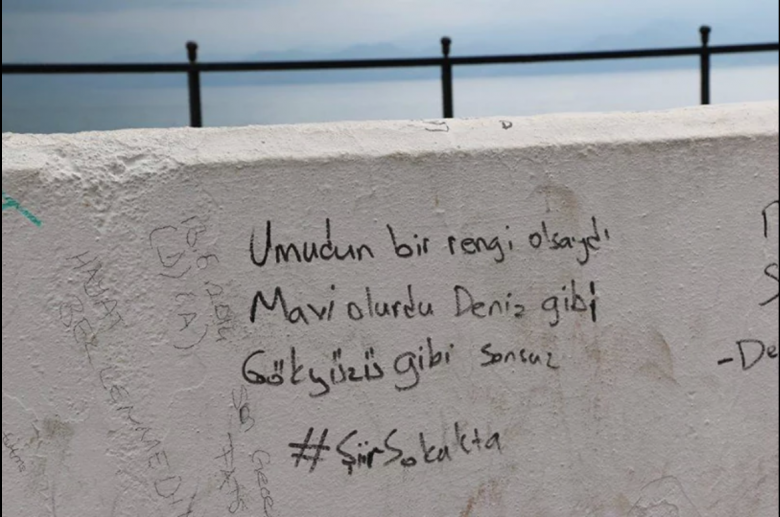 Umudun bir rengi olsaydı
Mavi olurdu Deniz gibi
Gökyüzü gibi sonsuz
#ŞiirSokakta
-De
HAYAT